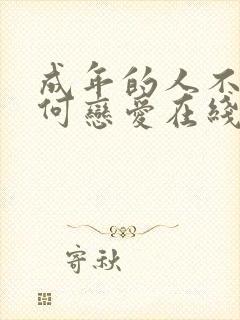 成年的人不
何戀愛在綫
寄秋